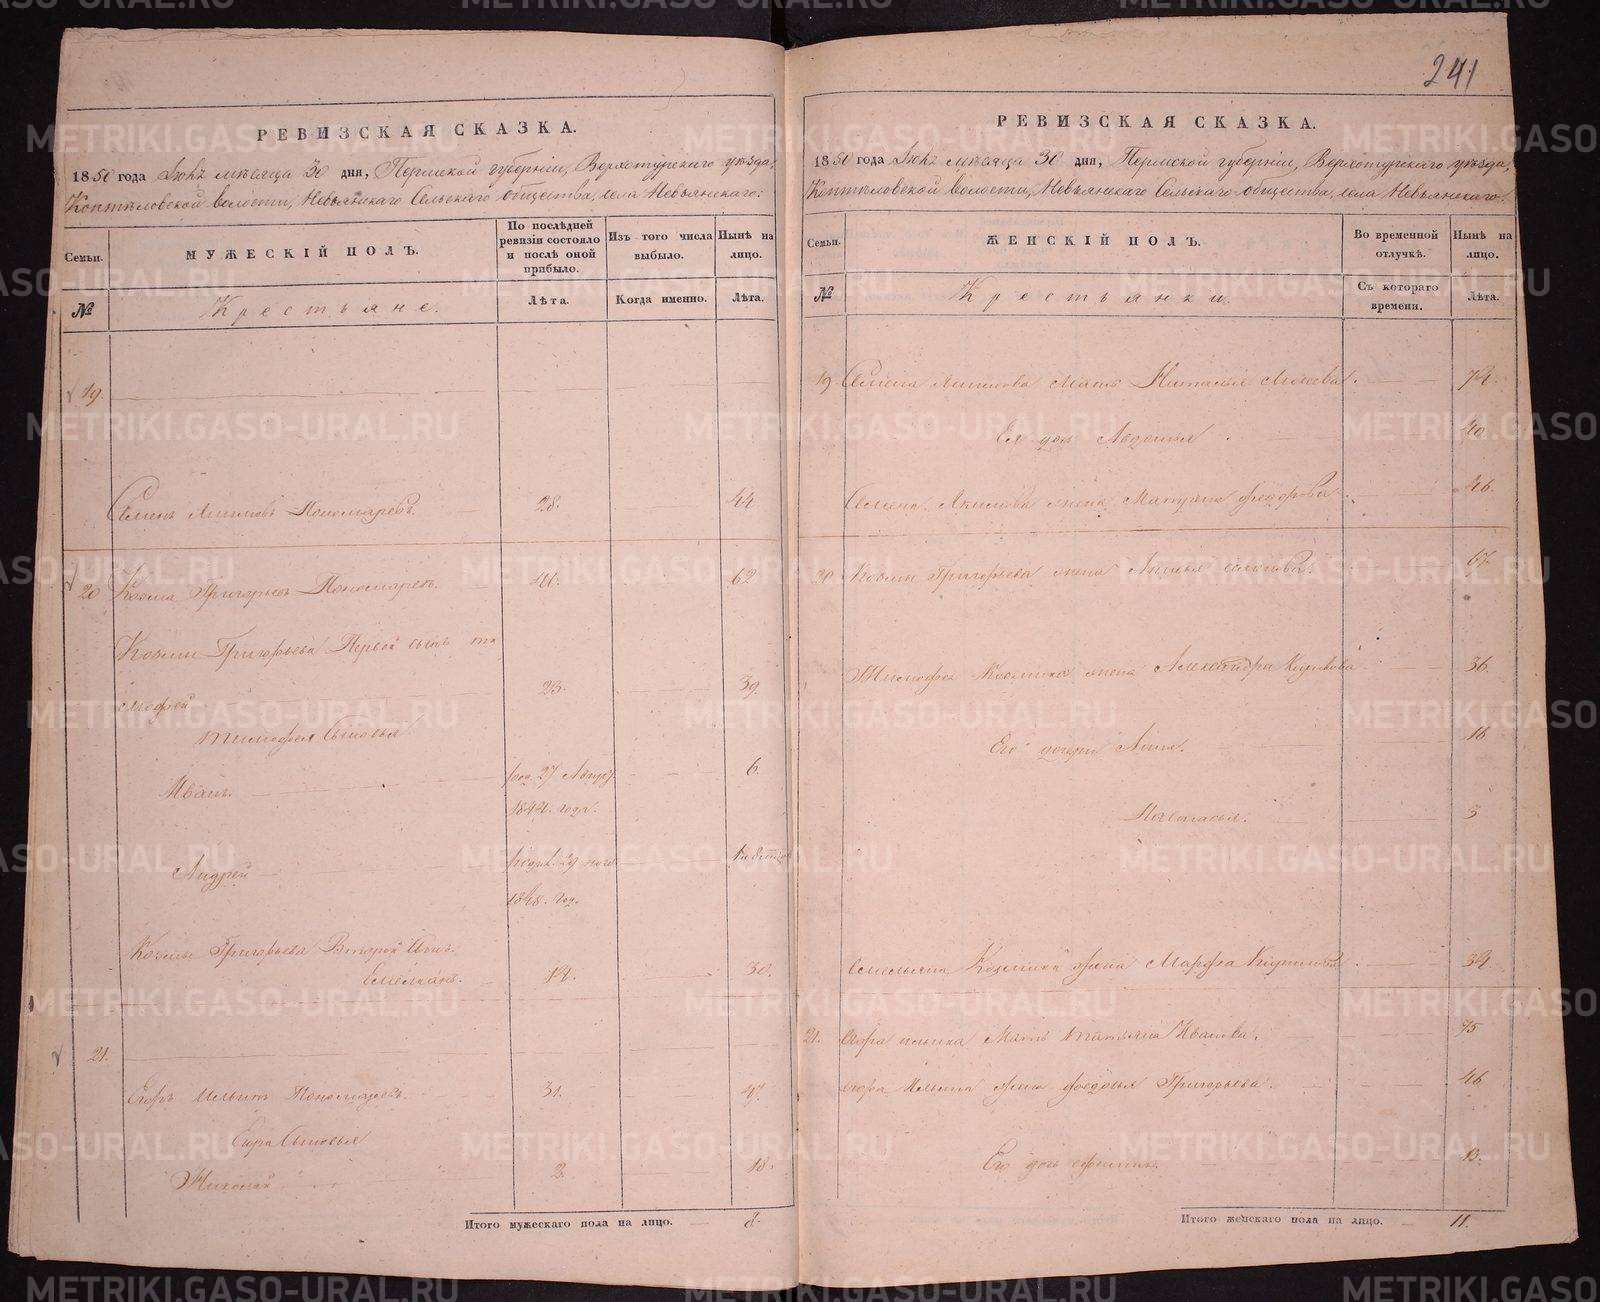 241
РЕВИЗСКАЯ СКАЗКА.
1850 года Іюнѣ мѣсяца 30 дня, Пермской губерніи, Верхотурскаго уѣзда,
Коптѣловской волости, Невьянскаго Сельскаго общества, села Невьянскаго:
Семьи.
МУЖЕСКІЙ ПОЛЪ.
По послѣдней ревизіи состояло и послѣ оной прибыло.
Изъ того числа выбыло.
Нынѣ на лицо.
№
Крестьяне.
Лѣта.
Когда именно.
Лѣта.
19.
Семенъ Акимовъ Пономаревъ. 28. 44
20 Козма Григорьевъ Пономаревъ. 46. 62
Козмы Григорьева Первой сынъ Ти
мофей 23. 39.
Тимофея Сыновья
Иванъ. род. 27 Авгус. 6.
1844. года.
Андрей 29
1848. год.
Козмы Григорьева Второй Сынъ.
Емельянъ. 14. 30.
21.
Егоръ Ильинъ Пономаревъ. 31. 47.
Егора Сыновья
Николай 2. 18.
Итого мужескаго пола на лицо. 8.
РЕВИЗСКАЯ СКАЗКА.
1850 года Іюнѣ мѣсяца 30 дня, Пермской губерніи, Верхотурскаго уѣзда,
Коптѣловской волости, Невьянскаго Сельскаго общества, села Невьянскаго.
Семьи.
ЖЕНСКІЙ ПОЛЪ.
Во временной отлучкѣ.
Нынѣ на лицо.
№
Крестьянки
Съ котораго времени.
Лѣта.
19. Семена Акимова Мать Наталья 74.
Ея дочь Авдотья 40.
Семена Акимова жена Матрена Федорова 46.
20 Козмы Григорьева жена 67.
Тимофея Козмина жена Александра 36.
Его дочери Анна. 16
Настасья. 3
Емельяна Козмина жена Марфа 34
21. Егора Ильина Мать Татьяна Иванова. 75
Егора Ильина жена Федосья Григорьева. 46
Его дочь 13.
Итого женскаго пола на лицо. 11.
METRIKI.GASO-URAL.RU